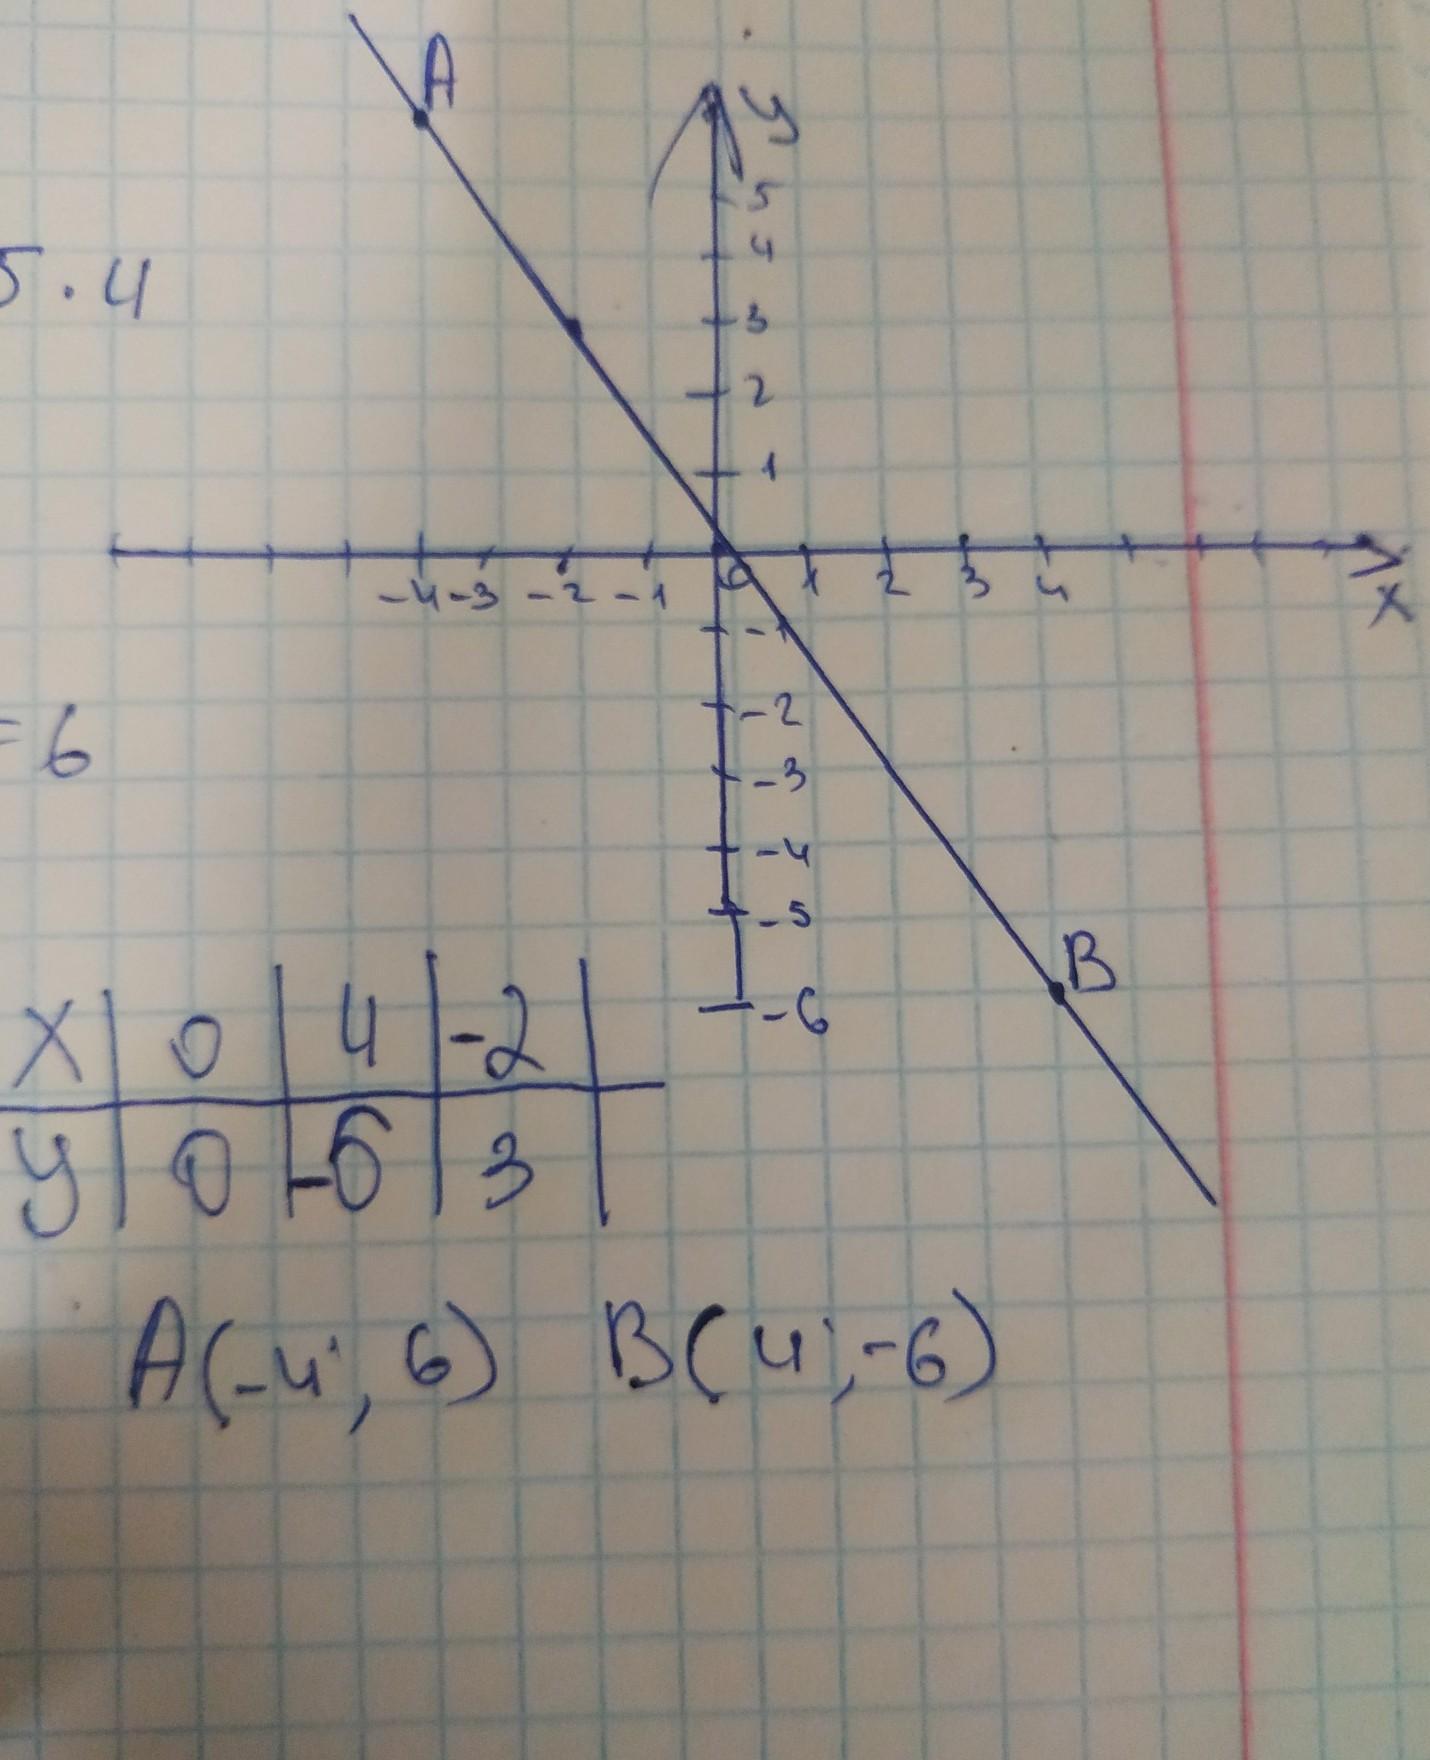 A
y
5
4
5 · 4
3
2
1
-4 -3 -2 -1 0 1 2 3 4
x
-1
-2
= 6
-3
-4
-5
B
-6
x | 0 | 4 | -2 |
y | 0 | -6 | 3 |
A(-4; 6) B(4; -6)